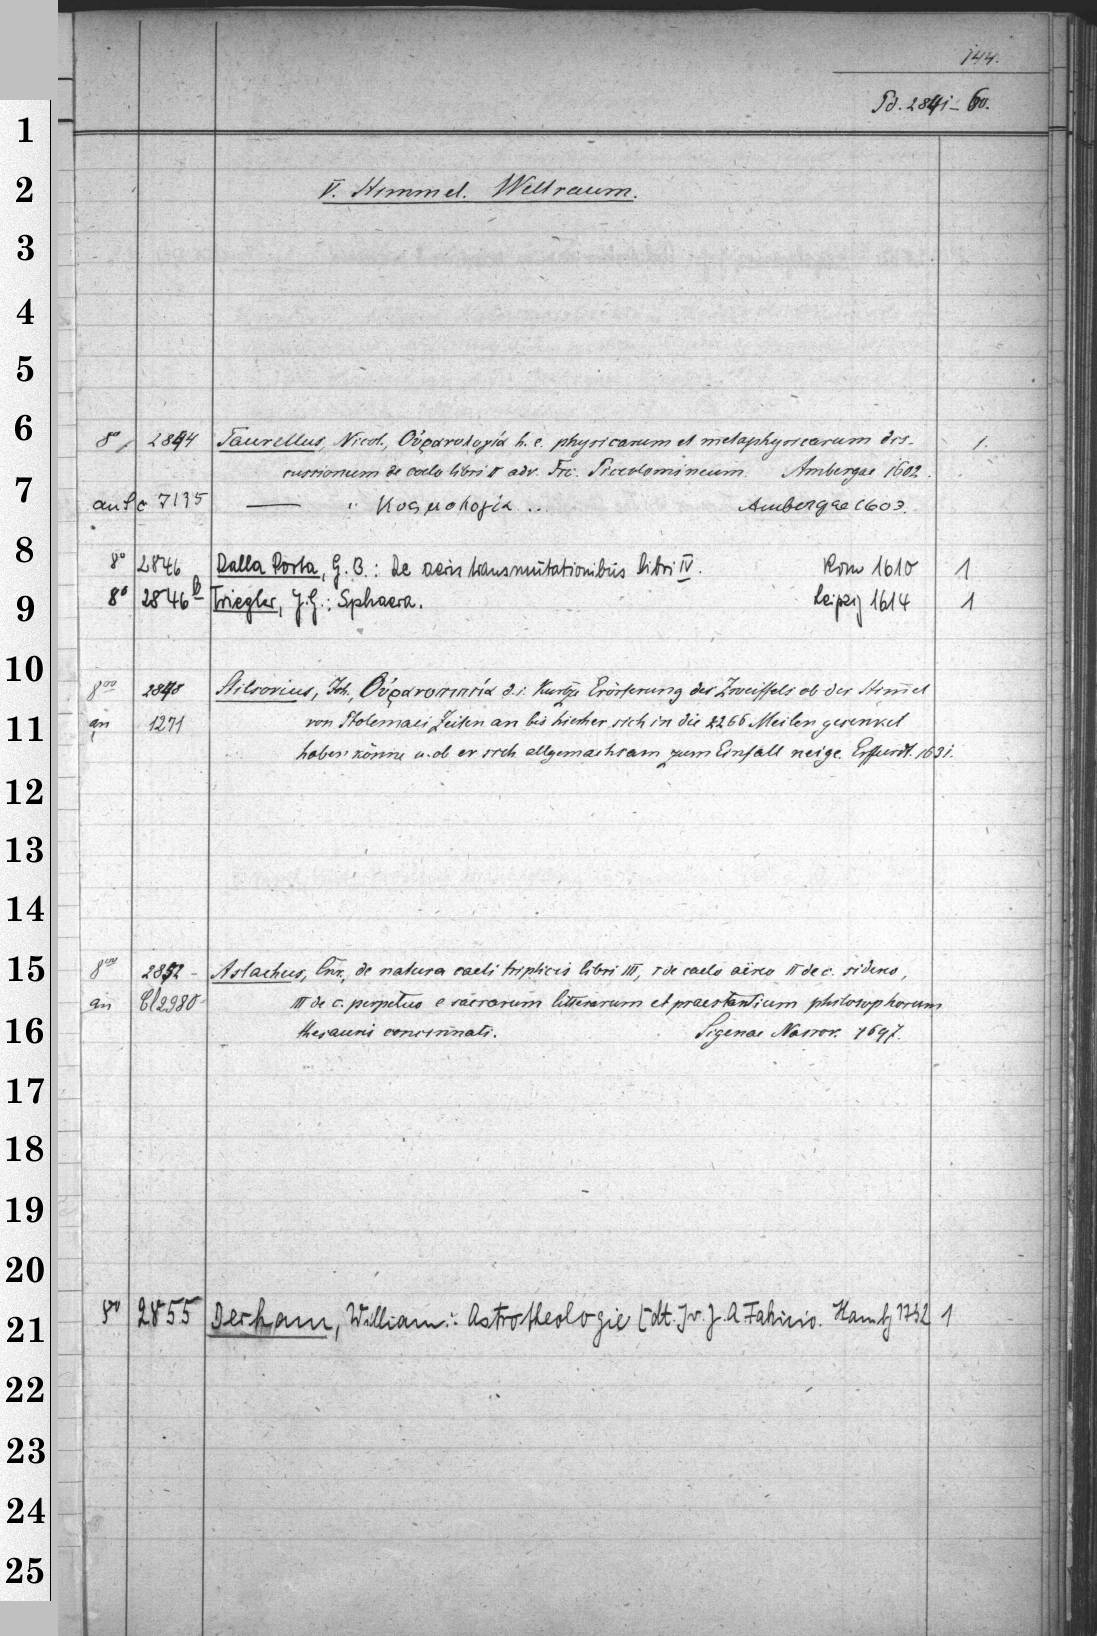 144.
Pd. 2841-60.
1
2
3
4
5
6
7
8
9
10
11
12
13
14
15
16
17
18
19
20
21
22
23
24
25
V. Himmel. Weltraum.
8° 2844 Taurellus, Nicol., Οὐρανολογία h. e. physicarum et metaphysicarum dis- 1.
cussionum de coelo libri II adv. Frc. Piccolomineum. Ambergae 1602.
an Pc 7135 — " Κοσμολογία .. Ambergae 1603.
8° 2846 Dalla Porta, G. B.: De aeris transmutationibus libri IV. Rom 1610 1
8° 2846 b Triegler, J. G.: Sphaera. Leipzig 1614 1
8vo 2848 Stilsovius, Joh., Οὐρανοπτισία d. i. Kurtze Erörterung des Zweiffels ob der Himmel
an 1271 von Ptolemaei Zeiten an bis hierher sich in die 2266 Meilen gesenket
haben könne u. ob er sich allgemachsam zum Einfall neige. Erffurdt. 1631.
8vo 2852 - Aslachus, Cnr., de natura caeli triplicis libri III, I de caelo aëreo II de c. sidereo,
an Cl 2980 III de c. perpetuo e sacrarum litterarum et praestantium philosophorum
thesauris concinnati. Sigenae Nassov. 1697.
8vo 2855 Derham, William: Astrotheologie [dt. v. J. A Fabricio. Hambg 1732 1